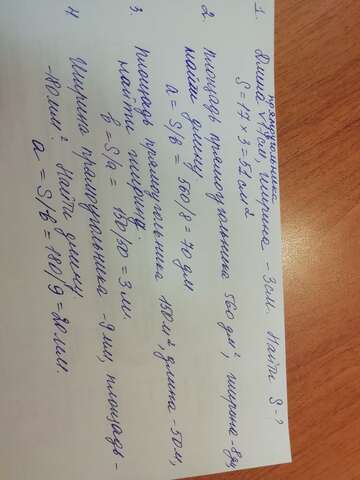 1. Длина прямоугольника 17см, ширина - 3см. Найти S - ?
S = 17 × 3 = 51см2
2. Площадь прямоугольника 560 дм², ширина - 8дм
найти длину
a = S/b = 560/8 = 70 дм
3. Площадь прямоугольника 150м², длина - 50м,
найти ширину.
b = S/a = 150/50 = 3 м.
4 Ширина прямоугольника - 9мм, площадь -
- 180мм². Найти длину.
a = S/b = 180/9 = 20мм.